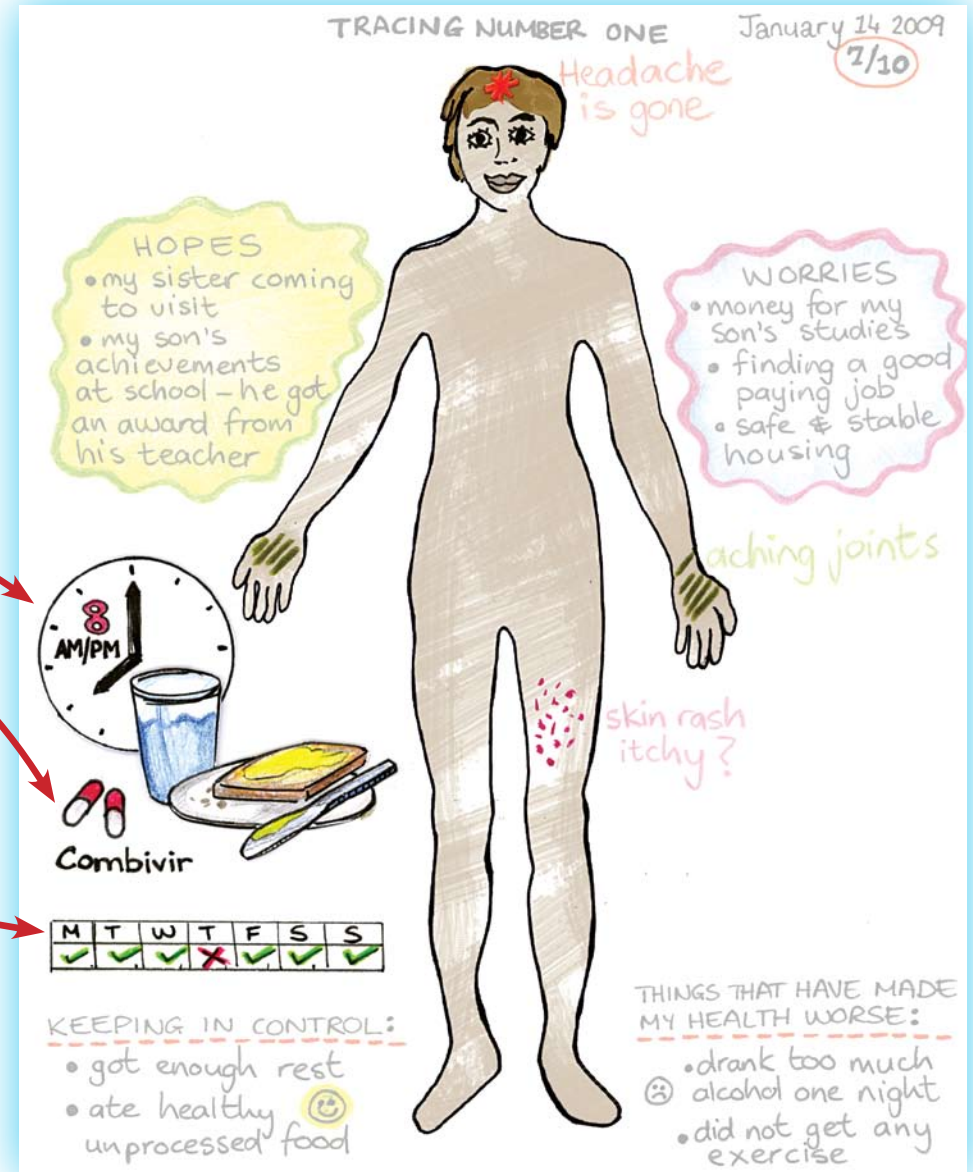 TRACING NUMBER ONE
January 14 2009
7/10
Headache
is gone
HOPES
• my sister coming
to visit
• my son's
achievements
at school – he got
an award from
his teacher
WORRIES
• money for my
son's studies
• finding a good
paying job
• safe & stable
housing
aching joints
8
AM/PM
skin rash
itchy?
Combivir
M T W T F S S
✓ ✓ ✓ ✗ ✓ ✓ ✓
KEEPING IN CONTROL:
• got enough rest
• ate healthy
unprocessed food
THINGS THAT HAVE MADE
MY HEALTH WORSE:
• drank too much
alcohol one night
• did not get any
exercise